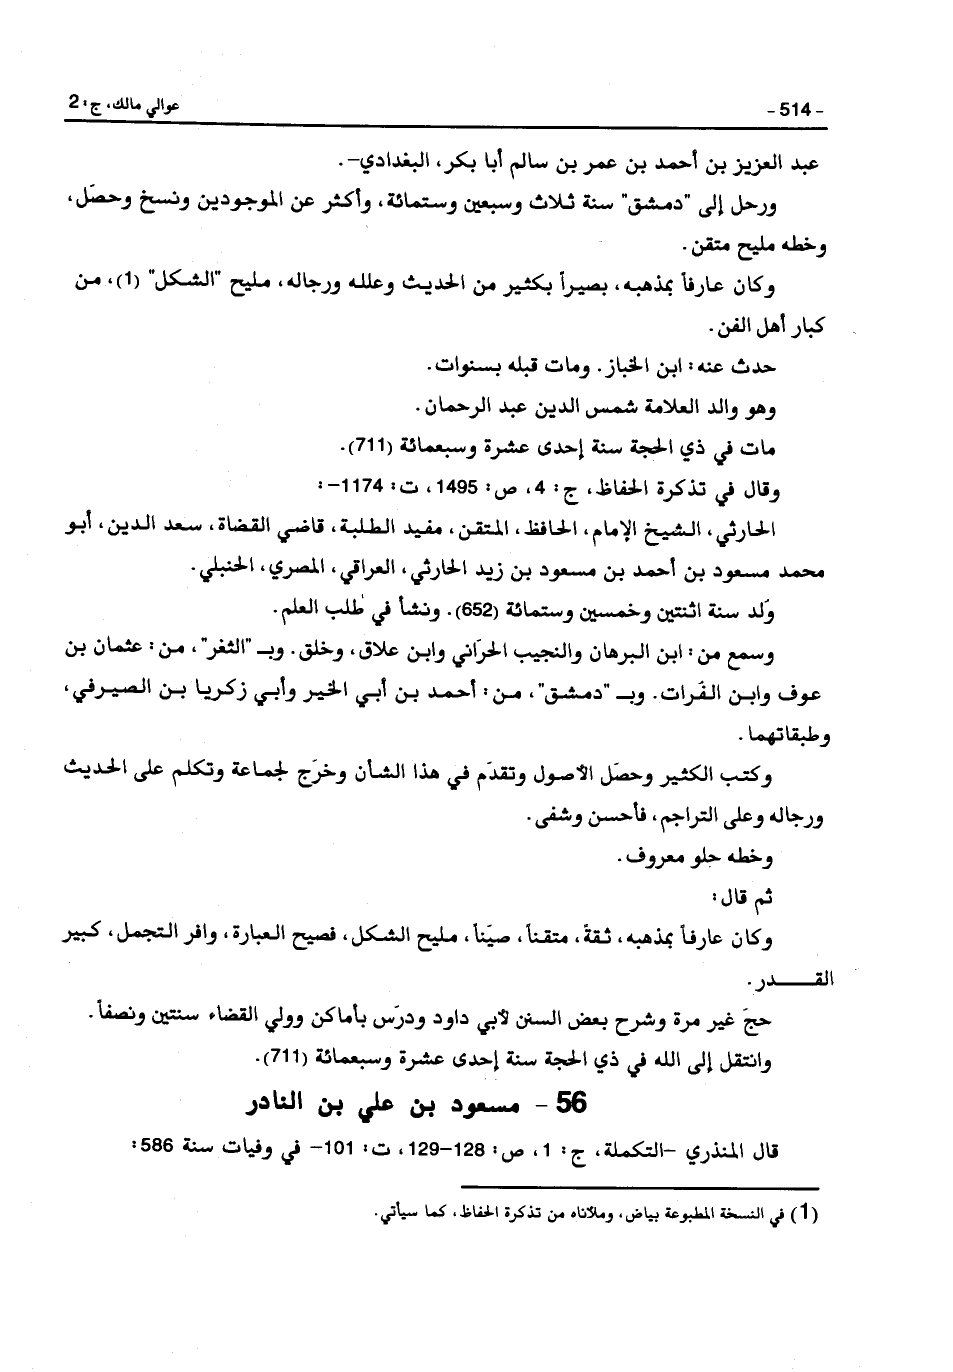 - 514 - عوالي مالك، ج: 2
عبد العزيز بن أحمد بن عمر بن سالم أبا بكر، البغدادي–.
ورحل إلى "دمشق" سنة ثلاث وسبعين وستمائة، وأكثر عن الموجودين ونسخ وحصّل،
وخطه مليح متقن.
وكان عارفاً بمذهبه، بصيراً بكثير من الحديث وعلله ورجاله، مليح "الشكل" (1)، من
كبار أهل الفن.
حدث عنه: ابن الخباز. ومات قبله بسنوات.
وهو والد العلامة شمس الدين عبد الرحمان.
مات في ذي الحجة سنة إحدى عشرة وسبعمائة (711).
وقال في تذكرة الحفاظ، ج: 4، ص: 1495، ت: 1174–:
الحارثي، الشيخ الإمام، الحافظ، المتقن، مفيد الطلبة، قاضي القضاة، سعد الدين، أبو
محمد مسعود بن أحمد بن مسعود بن زيد الحارثي، العراقي، المصري، الحنبلي.
وُلد سنة اثنتين وخمسين وستمائة (652). ونشأ في طلب العلم.
وسمع من: ابن البرهان والنجيب الحرّاني وابن علاق، وخلق. وبـ "الثغر"، من: عثمان بن
عوف وابن الفُرات. وبـ "دمشق"، من: أحمد بن أبي الخير وأبي زكريا بن الصيرفي،
وطبقاتهما.
وكتب الكثير وحصّل الأصول وتقدّم في هذا الشأن وخرّج لجماعة وتكلم على الحديث
ورجاله وعلى التراجم، فأحسن وشفى.
وخطه حلو معروف.
ثم قال:
وكان عارفاً بمذهبه، ثقةً، متقناً، صيّناً، مليح الشكل، فصيح العبارة، وافر التجمل، كبير
القـــدر.
حجّ غير مرة وشرح بعض السنن لأبي داود ودرّس بأماكن وولي القضاء سنتين ونصفاً.
وانتقل إلى الله في ذي الحجة سنة إحدى عشرة وسبعمائة (711).
56 - مسعود بن علي بن النادر
قال المنذري –التكملة، ج: 1، ص: 128–129، ت: 101– في وفيات سنة 586:
(1) في النسخة المطبوعة بياض، وملأناه من تذكرة الحفاظ، كما سيأتي.